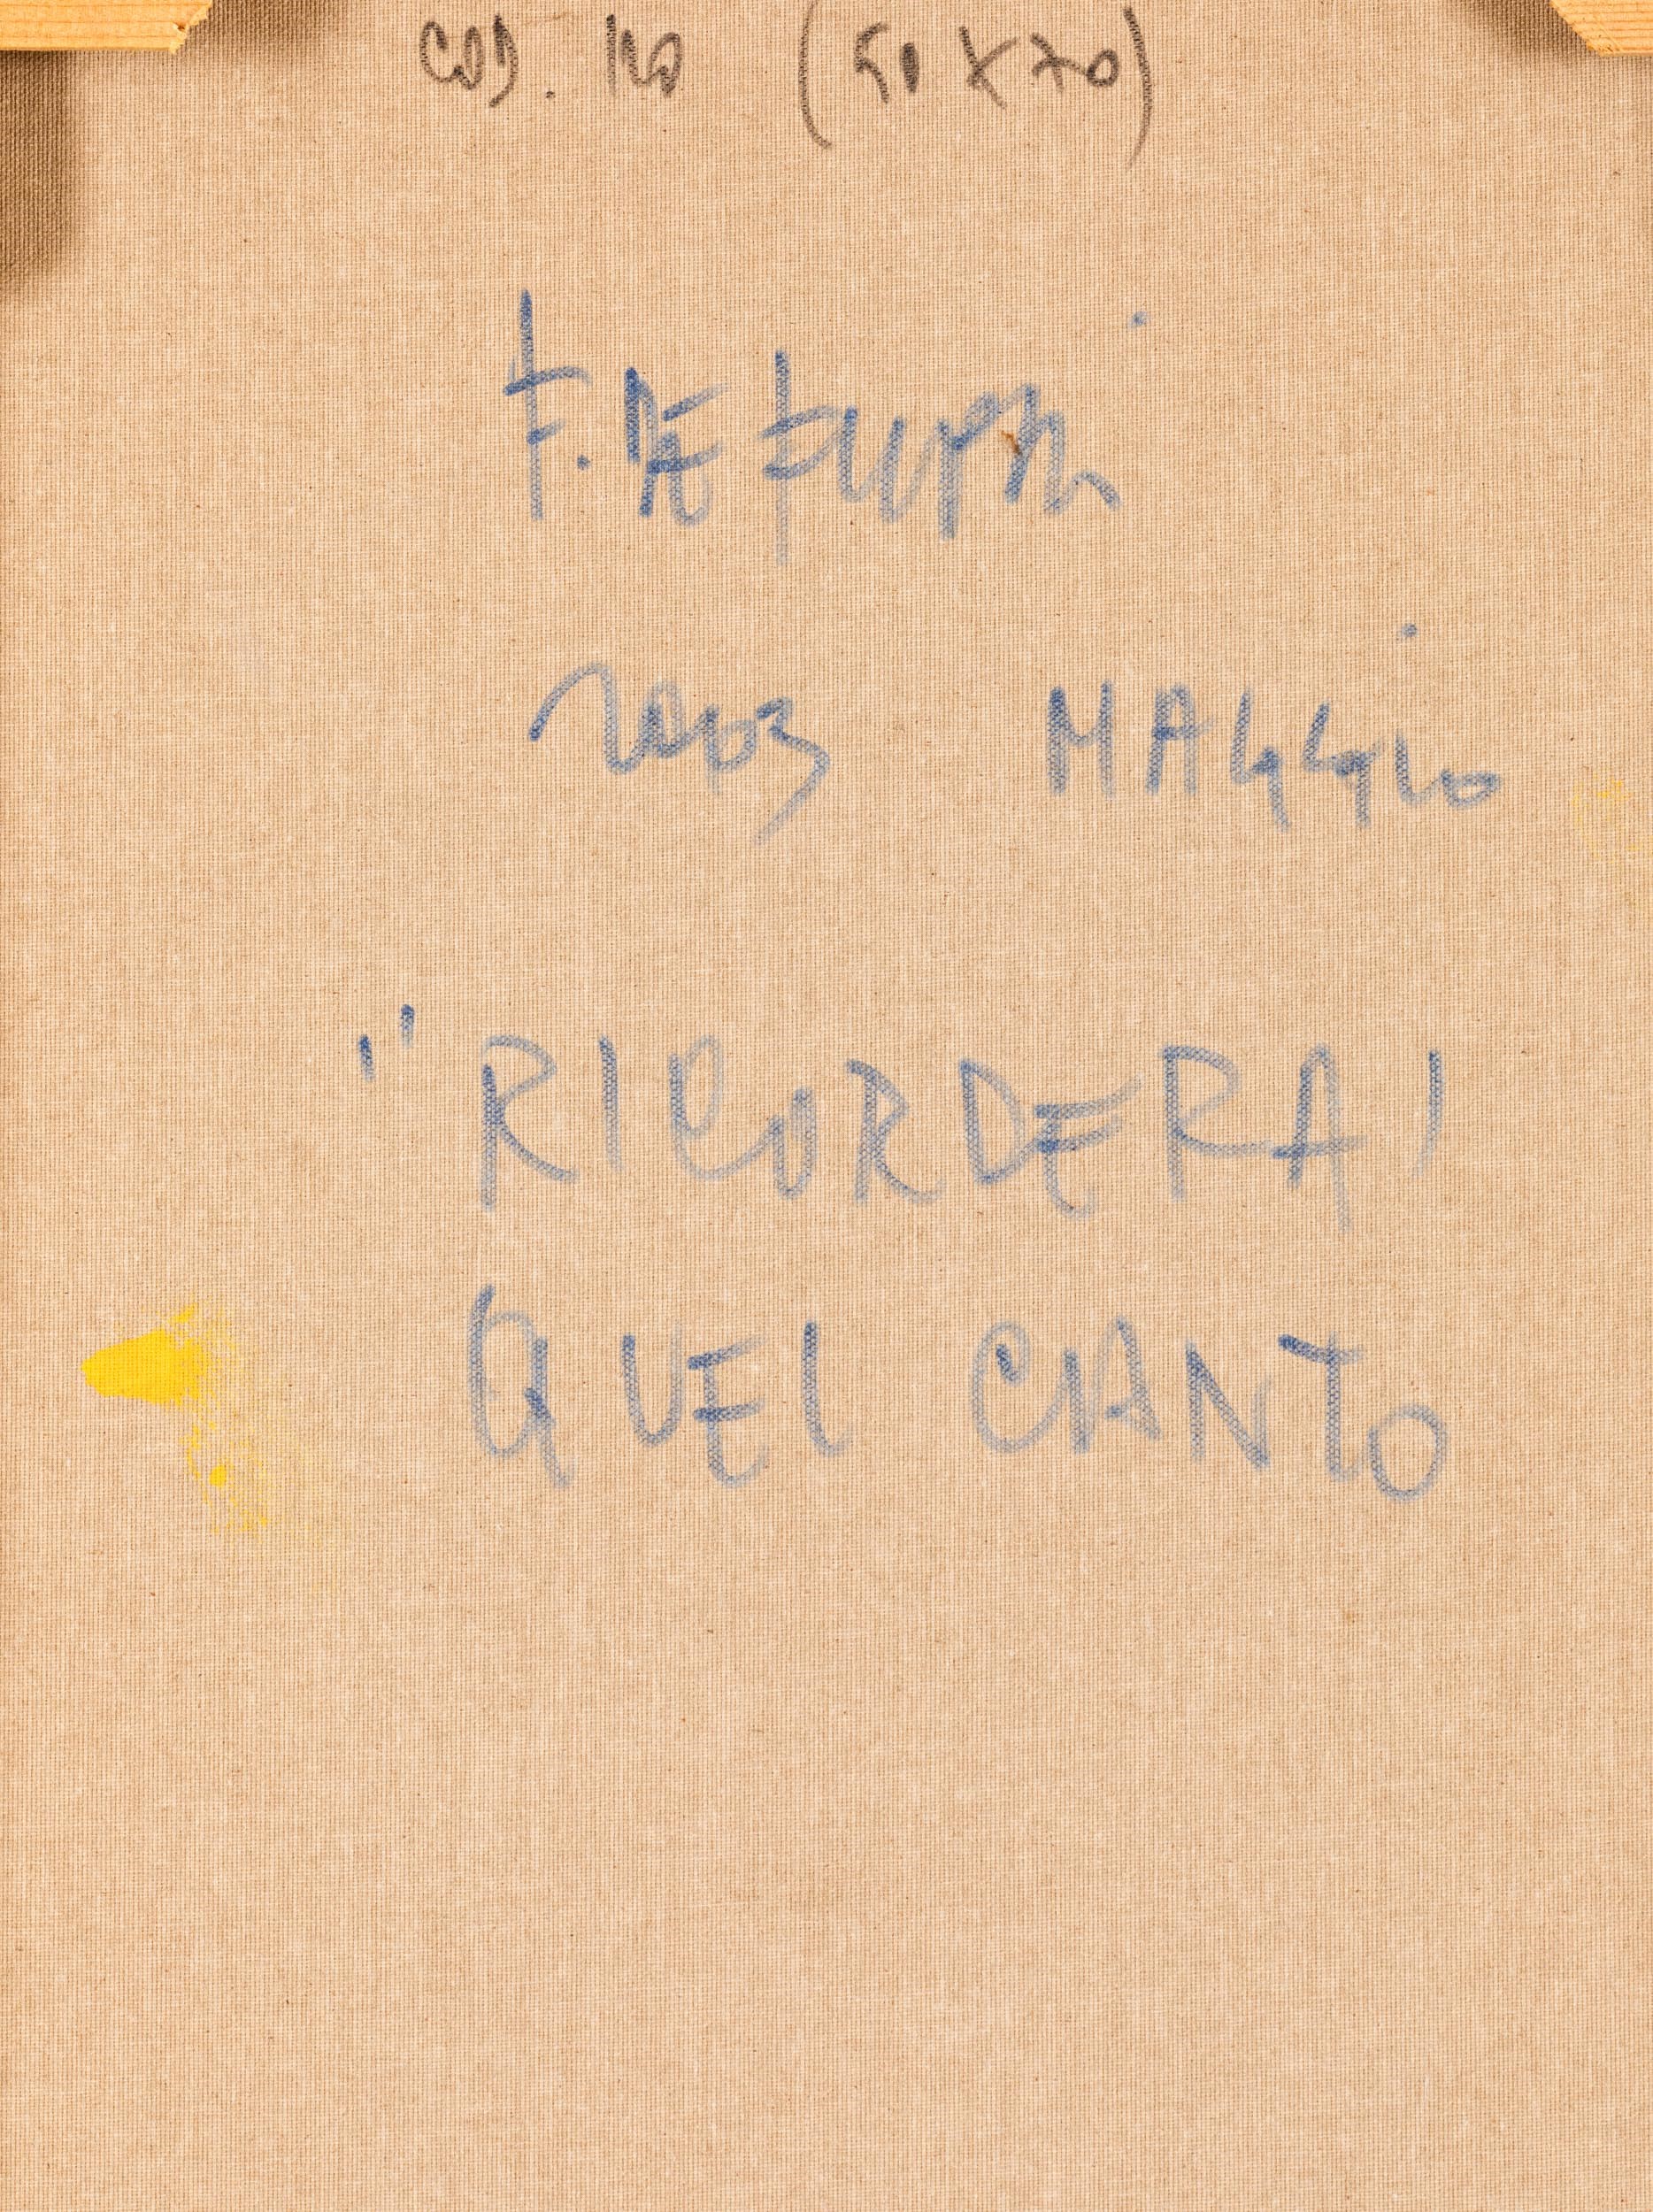 COD. 120 (50 X 70)
F. DE FILIPPI
2003 MAGGIO
"RICORDERAI
QUEL CANTO